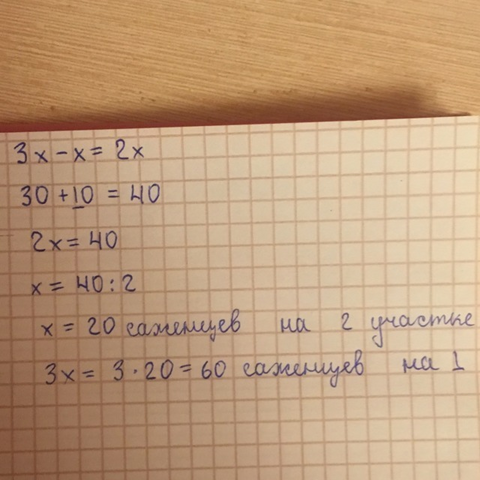 3x - x = 2x
30 + 10 = 40
2x = 40
x = 40 : 2
x = 20 саженцев на 2 участке
3x = 3 · 20 = 60 саженцев на 1